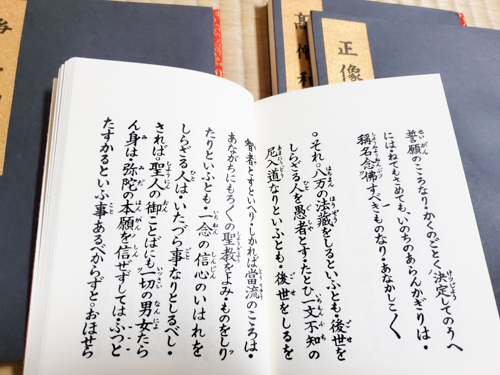 正像
高僧和
誓願のこころなり・かくのごとく・決定してのうへ
には・ねてもさめても・いのちのあらんかぎりは・
稱名念佛すべきものなり・あなかしこ〱
。それ・八万の法藏をしるといふとも・後世を
しらざる人を愚者とす・たとひ一文不知の
尼入道なりといふとも・後世をしるを
智者とすといへり・しかれば當流のこころは・
あながちにもろ〱の聖教をよみ・ものをしり
たりといふとも・一念の信心のいはれを
しらざる人は・いたづら事なりとしるべし・
されば・聖人の御ことばにも・一切の男女たら
ん身は・弥陀の本願を信ぜずしては・ふつと
たすかるといふ事あるべからずと・おほせら